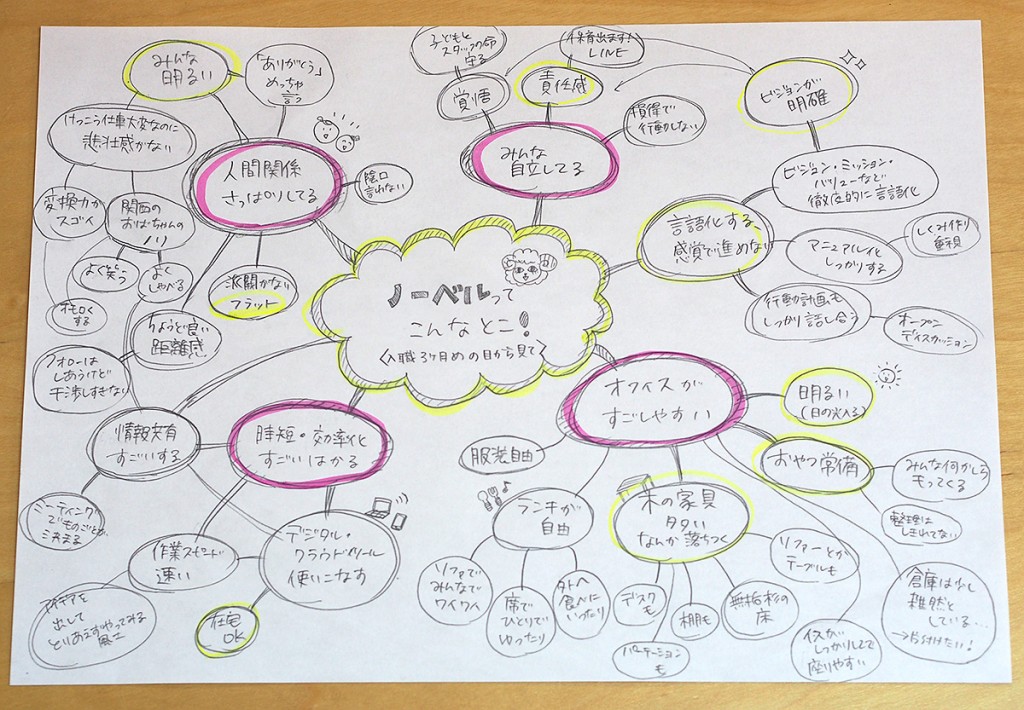 ノーベルって
こんなとこ!
〈入職3ヶ月めの目から見て〉
みんな
明るい
「ありがとう」
めっちゃ
言う
けっこう仕事大変なのに
悲壮感がない
変換力が
スゴイ
関西の
おばちゃんの
ノリ
よく笑う
よく
しゃべる
オモロく
する
人間関係
さっぱりしてる
陰口
言わない
派閥がない
フラット
ちょうど良い
距離感
フォローは
しあうけど
干渉しすぎない
子どもと
スタッフの命
守る
覚悟
保育出ます!
LINE
責任感
損得で
行動しない
みんな
自立してる
ビジョンが
明確
ビジョン・ミッション・
バリューなど
徹底的に言語化
言語化する
感覚で進めない
マニュアル化
しっかりする
しくみ作り
重視
行動計画も
しっかり話し合う
オープン
ディスカッション
情報共有
すごいする
時短・効率化
すごいはかる
ミーティング
でものごとが
決まる
作業スピード
速い
デジタル・
クラウドツール
使いこなす
アイデアを
出して
とりあえずやってみる
風土
在宅
OK
オフィスが
すごしやすい
明るい
(日の光入る)
おやつ常備
みんな何かしら
もってくる
整理は
しきれてない
倉庫は少し
雑然と
している…
→片付けたい!
服装自由
ランチが
自由
ソファで
みんなで
ワイワイ
席で
ひとりで
ゆったり
外へ
食べに
いったり
木の家具
多い
なんか落ちつく
デスク
も
パーテーション
も
棚も
無垢杉の
床
ソファーとか
テーブルも
イスが
しっかりしてて
座りやすい